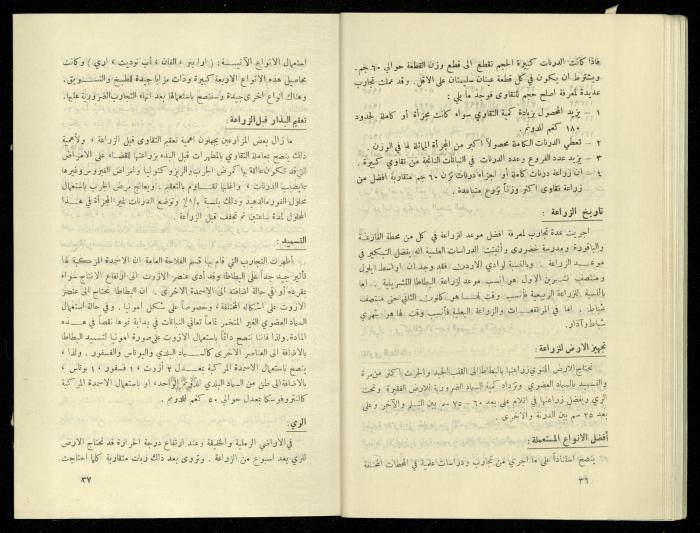 فاذا كانت الدرنات كبيرة الحجم تقطع الى قطع وزن القطعة حوالي ٦٠ جم .
ويشترط ان يكون في كل قطعة عينان سليمتان على الاقل . وقد عملت تجارب
عديدة لمعرفة اصلح حجم للتقاوى فوجد ما يلي :
١ - يزيد المحصول بزيادة كمية التقاوى سواء كانت مجزأة أو كاملة لحدود
١٨٠ كغم للدونم .
٢ - تعطي الدرنات الكاملة محصولاً اكبر من المجزأة المماثلة لها في الوزن .
٣ - يزيد عدد الفروع وعدد الدرنات في النباتات الناتجة من تقاوي كبيرة .
٤ - ان زراعة درنات كاملة أو اجزاء درنات تزن ٦٠ جم متقاربة افضل من
زراعة تقاوى اكثر وزناً تزرع متباعدة .
تاريخ الزراعة :
اجريت عدة تجارب لمعرفة افضل موعد للزراعة في كل من محطة الفارعة
والباقورة ومدرسة خضوري وأثبتت الدراسات العلمية انه يفضل التبكير في
موعد الزراعة . وبالنسبة لوادي الاردن فقد وجد ان اواسط ايلول
ومنتصف تشرين الاول هو انسب موعد لزراعة البطاطا التشرينية . اما
بالنسبة للزراعة الربيعية فأنسب وقت لها هو كانون الثاني حتى منتصف
شباط . اما في المرتفعات والزراعة البعلية فأنسب وقت لها هو شهري
شباط وآذار .
تجهيز الارض للزراعة :
تحتاج الارض المنوي زراعتها بالبطاطا الى القلب الجيد والحرث اكثر من مرة
والتسميد بالسماد العضوي وتزداد كمية السماد الضرورية للارض الفقيرة وتحت
الري ويفضل زراعتها في اتلام على بعد ٦٠ – ٧٥ سم بين التلم والآخر وعلى
بعد ٢٥ سم بين الدرنة والاخرى .
أفضل الانواع المستعملة :
ينصح اعتماداً على ما اجري من تجارب ودراسات علمية في المحطات المختلفة
٣٦
استعمال الانواع الآتيسة : ( اوابنر ، الفان ، أب توديت ، اري ) وكانت
محاصيل هذه الانواع الاربعة كبيرة وذات مزايا جيدة للطبخ والتسويق .
وهناك أنواع اخرى جيدة وسننصح باستعمالها بعد انهاء التجارب الضرورية عليها .
تعقيم البذار قبل الزراعة :
ما زال بعض المزارعين يجهلون اهمية تعقيم التقاوى قبل الزراعة ، ولأهمية
ذلك ينصح بمعاملة التقاوى بالمطهرات قبل البدء بزراعتها للقضاء على الامراض
التي قد تكون عالقة بها كمرض الجرب والريزوكتونيا وامراض الفيروس وغيرها
مما يصيب الدرنات ، واغلبها تقاوم بالتعقيم . ويعالج مرض الجرب باستعمال
محلول الفورمالدهيد وذلك بنسبة ١/٢٪ وتوضع الدرنات غير المجزأة في هذا
المحلول لمدة ساعتين ثم تجفف قبل الزراعة .
التسميد :
أظهرت التجارب التي قام بها قسم الفلاحة العامة ان الاسمدة المركبة لها
تأثير جيد جداً على البطاطا وقد أدى عنصر الازوت الى ارتفاع الانتاج سواء
بمفرده أو في حالة اضافته الى الاسمدة الاخرى . ان البطاطا تحتاج الى عنصر
الازوت على اشكاله المختلفة ، وخصوصاً على شكل امونيا . وفي حالة استعمال
السماد العضوي الغير المتخمر تماماً تعاني النباتات في بداية نموها نقصاً في هذه
المادة . ولذا فاننا ننصح دائماً باستعمال الازوت على صورة امونيا لتسميد البطاطا
بالاضافة الى العناصر الاخرى كالسماد البلدي والبوتاس والفسفور . ولذا ،
ينصح باستعمال الاسمدة المركبة بمعدل ٢ أزوت ، ١ فسفور ، ١ بوتاس ،
بالاضافة الى طن من السماد البلدي للدونم الواحد ، او باستعمال الاسمدة المركبة
كالنتروفوسكا بمعدل حوالي ٥٠ كغم للدونم .
الري :
في الاراضي الرملية والخفيفة وعند ارتفاع درجة الحرارة قد تحتاج الارض
للري بعد اسبوع من الزراعة . وتروى بعد ذلك ريات متقاربة كلما احتاجت
٣٧